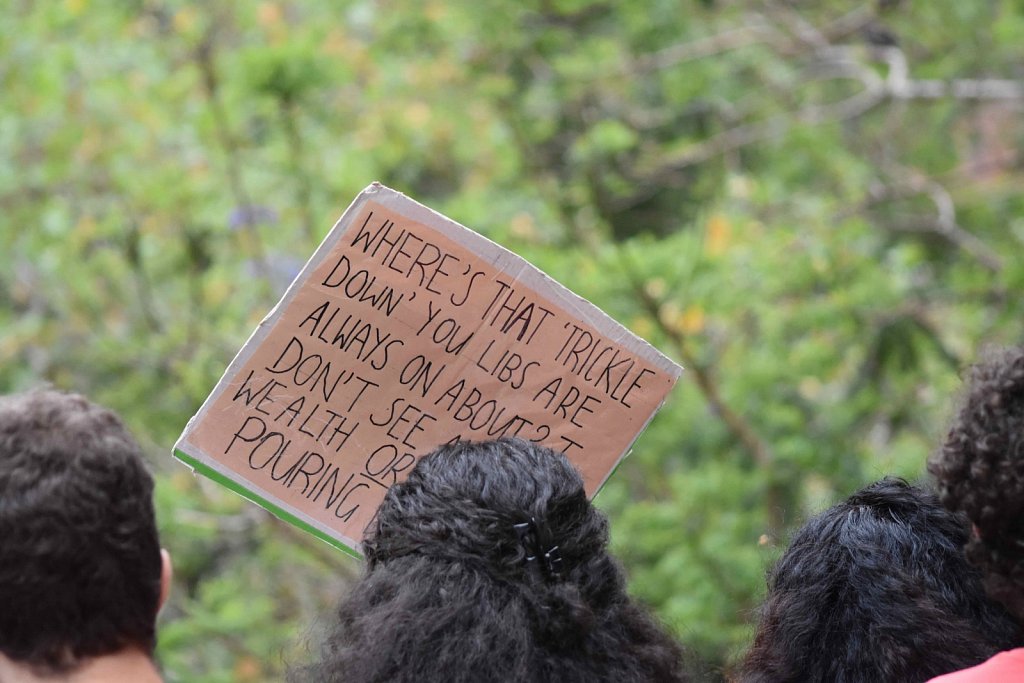 WHERE'S THAT 'TRICKLE
DOWN' YOU LIBS ARE
ALWAYS ON ABOUT? I
DON'T SEE
WEALTH OR
POURING